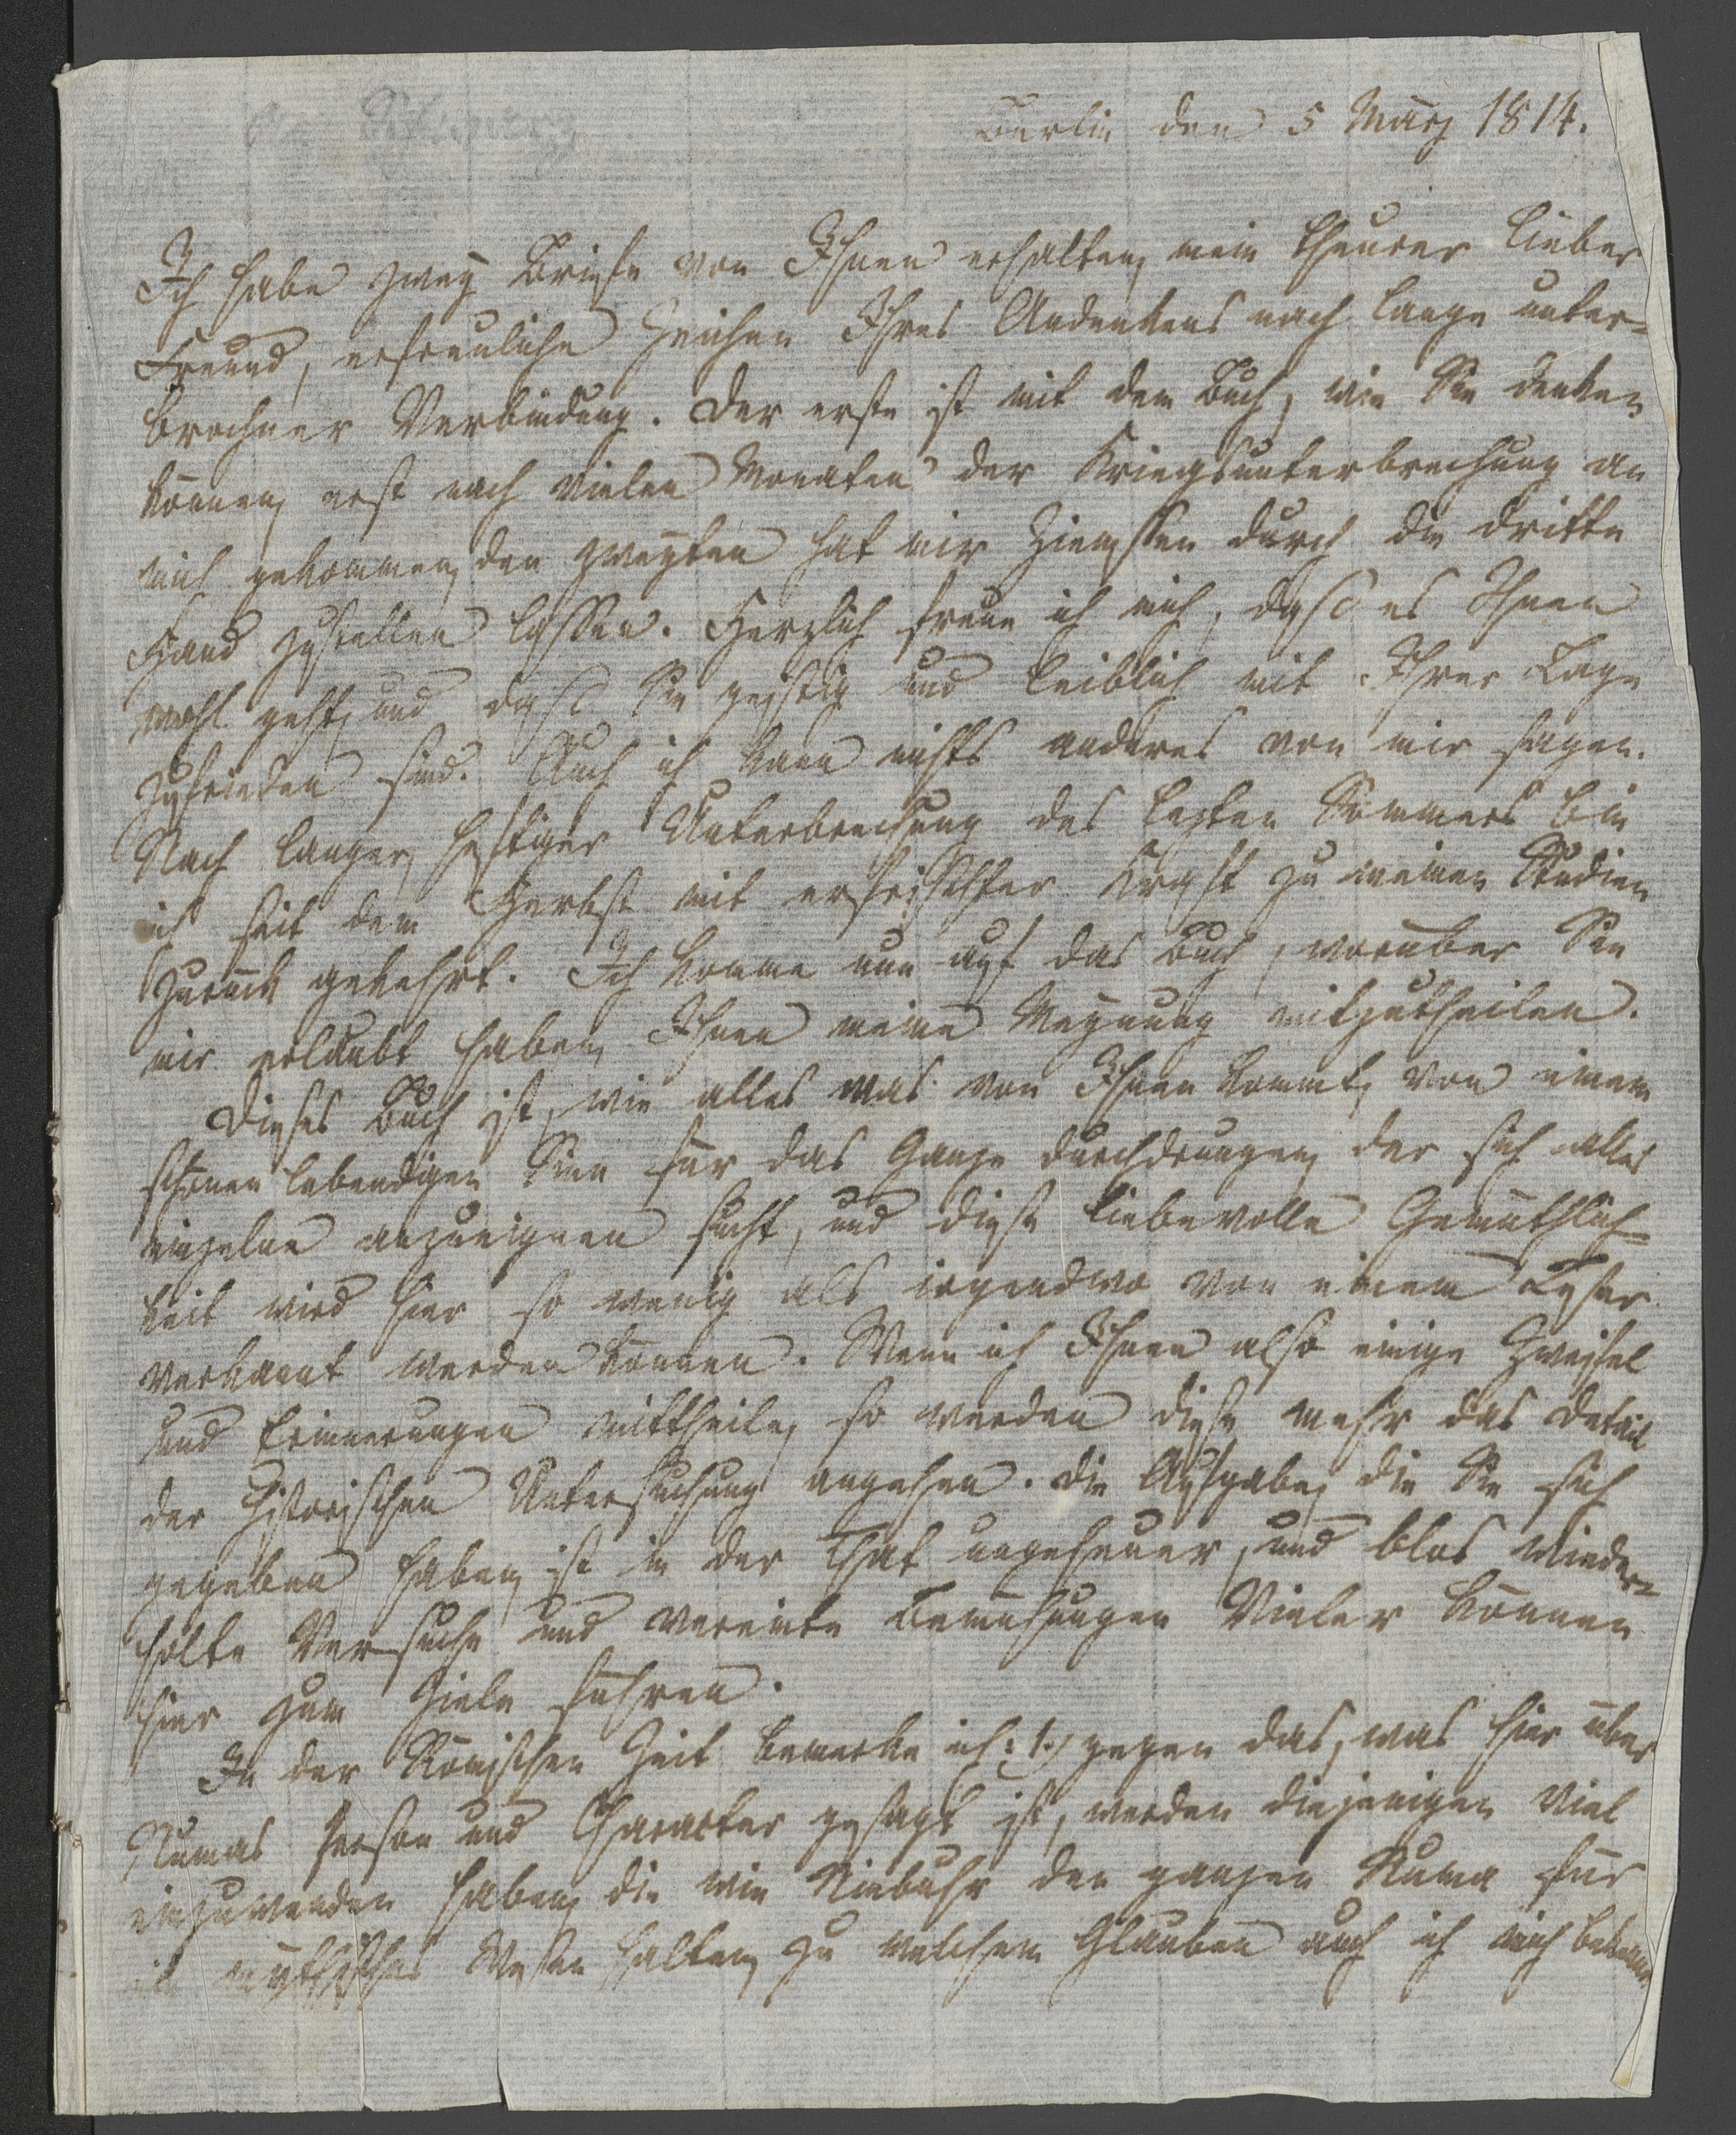 Berlin den 5 März 1814.
Ich habe zwey Briefe von Ihnen erhalten, mein theurer lieber
Freund, erfreuliche Zeichen Ihres Andenkens nach lange unter-
brochner Verbindung. Der erste ist mit dem Buch, wie Sie denken
können, erst nach vielen Monaten der Kriegsunterbrechung an
mich gekommen, den zweyten hat mir Ziemssen durch die dritte
Hand zustellen lassen. Herzlich freue ich mich, dass es Ihnen
wohl geht, und dass Sie geistig und leiblich mit Ihrer Lage
zufrieden sind. Auch ich kann nichts anderes von mir sagen.
Nach langer, heftiger Unterbrechung des lezten Sommers bin
ich seit dem Herbst mit erfrischter Kraft zu meinen Studien
zurück gekehrt. Ich komme nun auf das Buch, worüber Sie
mir erlaubt haben, Ihnen meine Meynung mitzutheilen.
Dieses Buch ist, wie alles was von Ihnen kommt, von einem
schönen lebendigen Sinn für das Ganze durchdrungen, der sich alles
einzelne anzueignen sucht, und diese liebevolle Gemüthlich-
keit wird hier so wenig als irgendwo von einem Leser
verkannt werden können. Wenn ich Ihnen also einige Zweifel
und Erinnerungen mittheile, so werden diese mehr das Detail
der historischen Untersuchung angehen. Die Aufgabe, die Sie sich
gegeben haben, ist in der That ungeheuer, und blos wieder-
holte Versuche und vereinte Bemühungen Vieler können
hier zum Ziele führen.
In der Römischen Zeit bemerke ich: 1.) gegen das, was hier über
Numas Person und Character gesagt ist, werden diejenigen viel
einzuwenden haben, die wie Niebuhr den ganzen Numa für
ein mythisches Wesen halten, zu welchem Glauben auch ich mich bekenne.